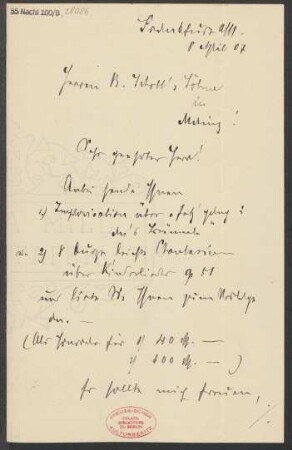 55 Nachl 100/B
Frankfurt a/M.
8 April 07
Herren B. Schott's Söhne
in
Mainz!
Sehr geehrter Herr!
Anbei sende Ihnen
1) Improvisation über "Ich ging
an's Brünnele"
2) 8 kurze leichte Fantasien
über Kinderlieder op 51
und biete sie Ihnen zum Verlage
an. —
(Als Honorar für 1) 40 M. —
2) 100 M. — )
Es sollte mich freuen,